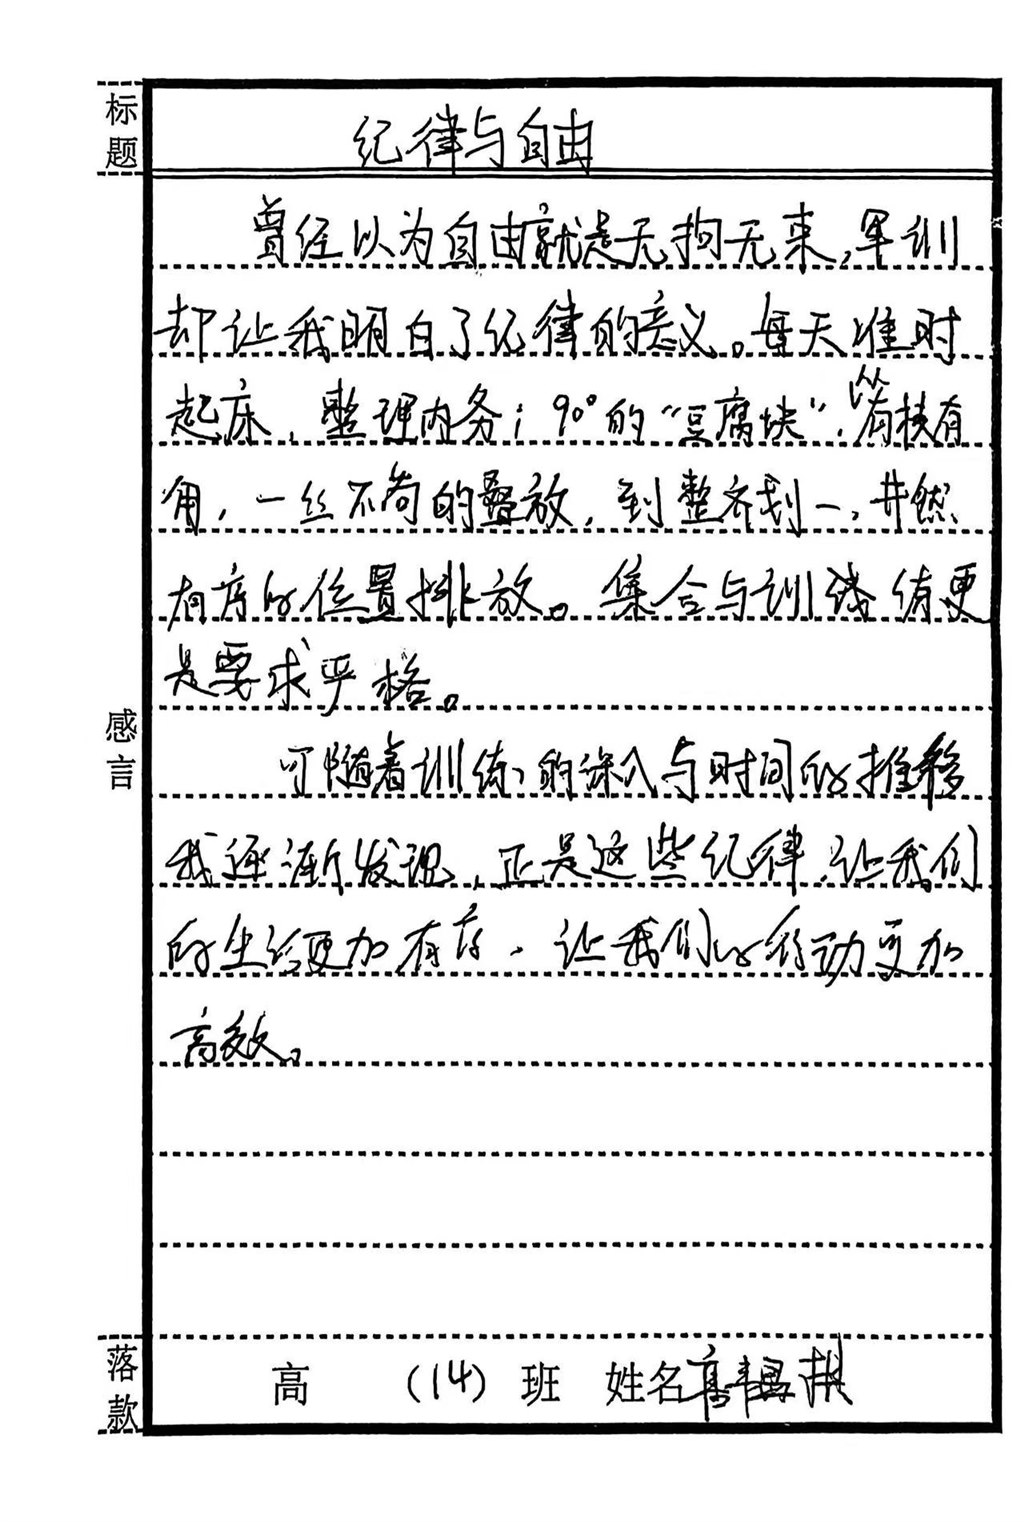 标题
纪律与自由
曾经以为自由就是无拘无束,军训
却让我明白了纪律的意义。每天准时
起床、整理内务;90°的“豆腐块”,从有棱有
角,一丝不苟的叠放,到整齐划一,井然
有序的位置排放。集合与训练更
是要求严格。
感言
可随着训练的深入与时间的推移
我逐渐发现,正是这些纪律,让我们
的生活更加有序、让我们的行动更加
高效。
落款
高 (14) 班 姓名高